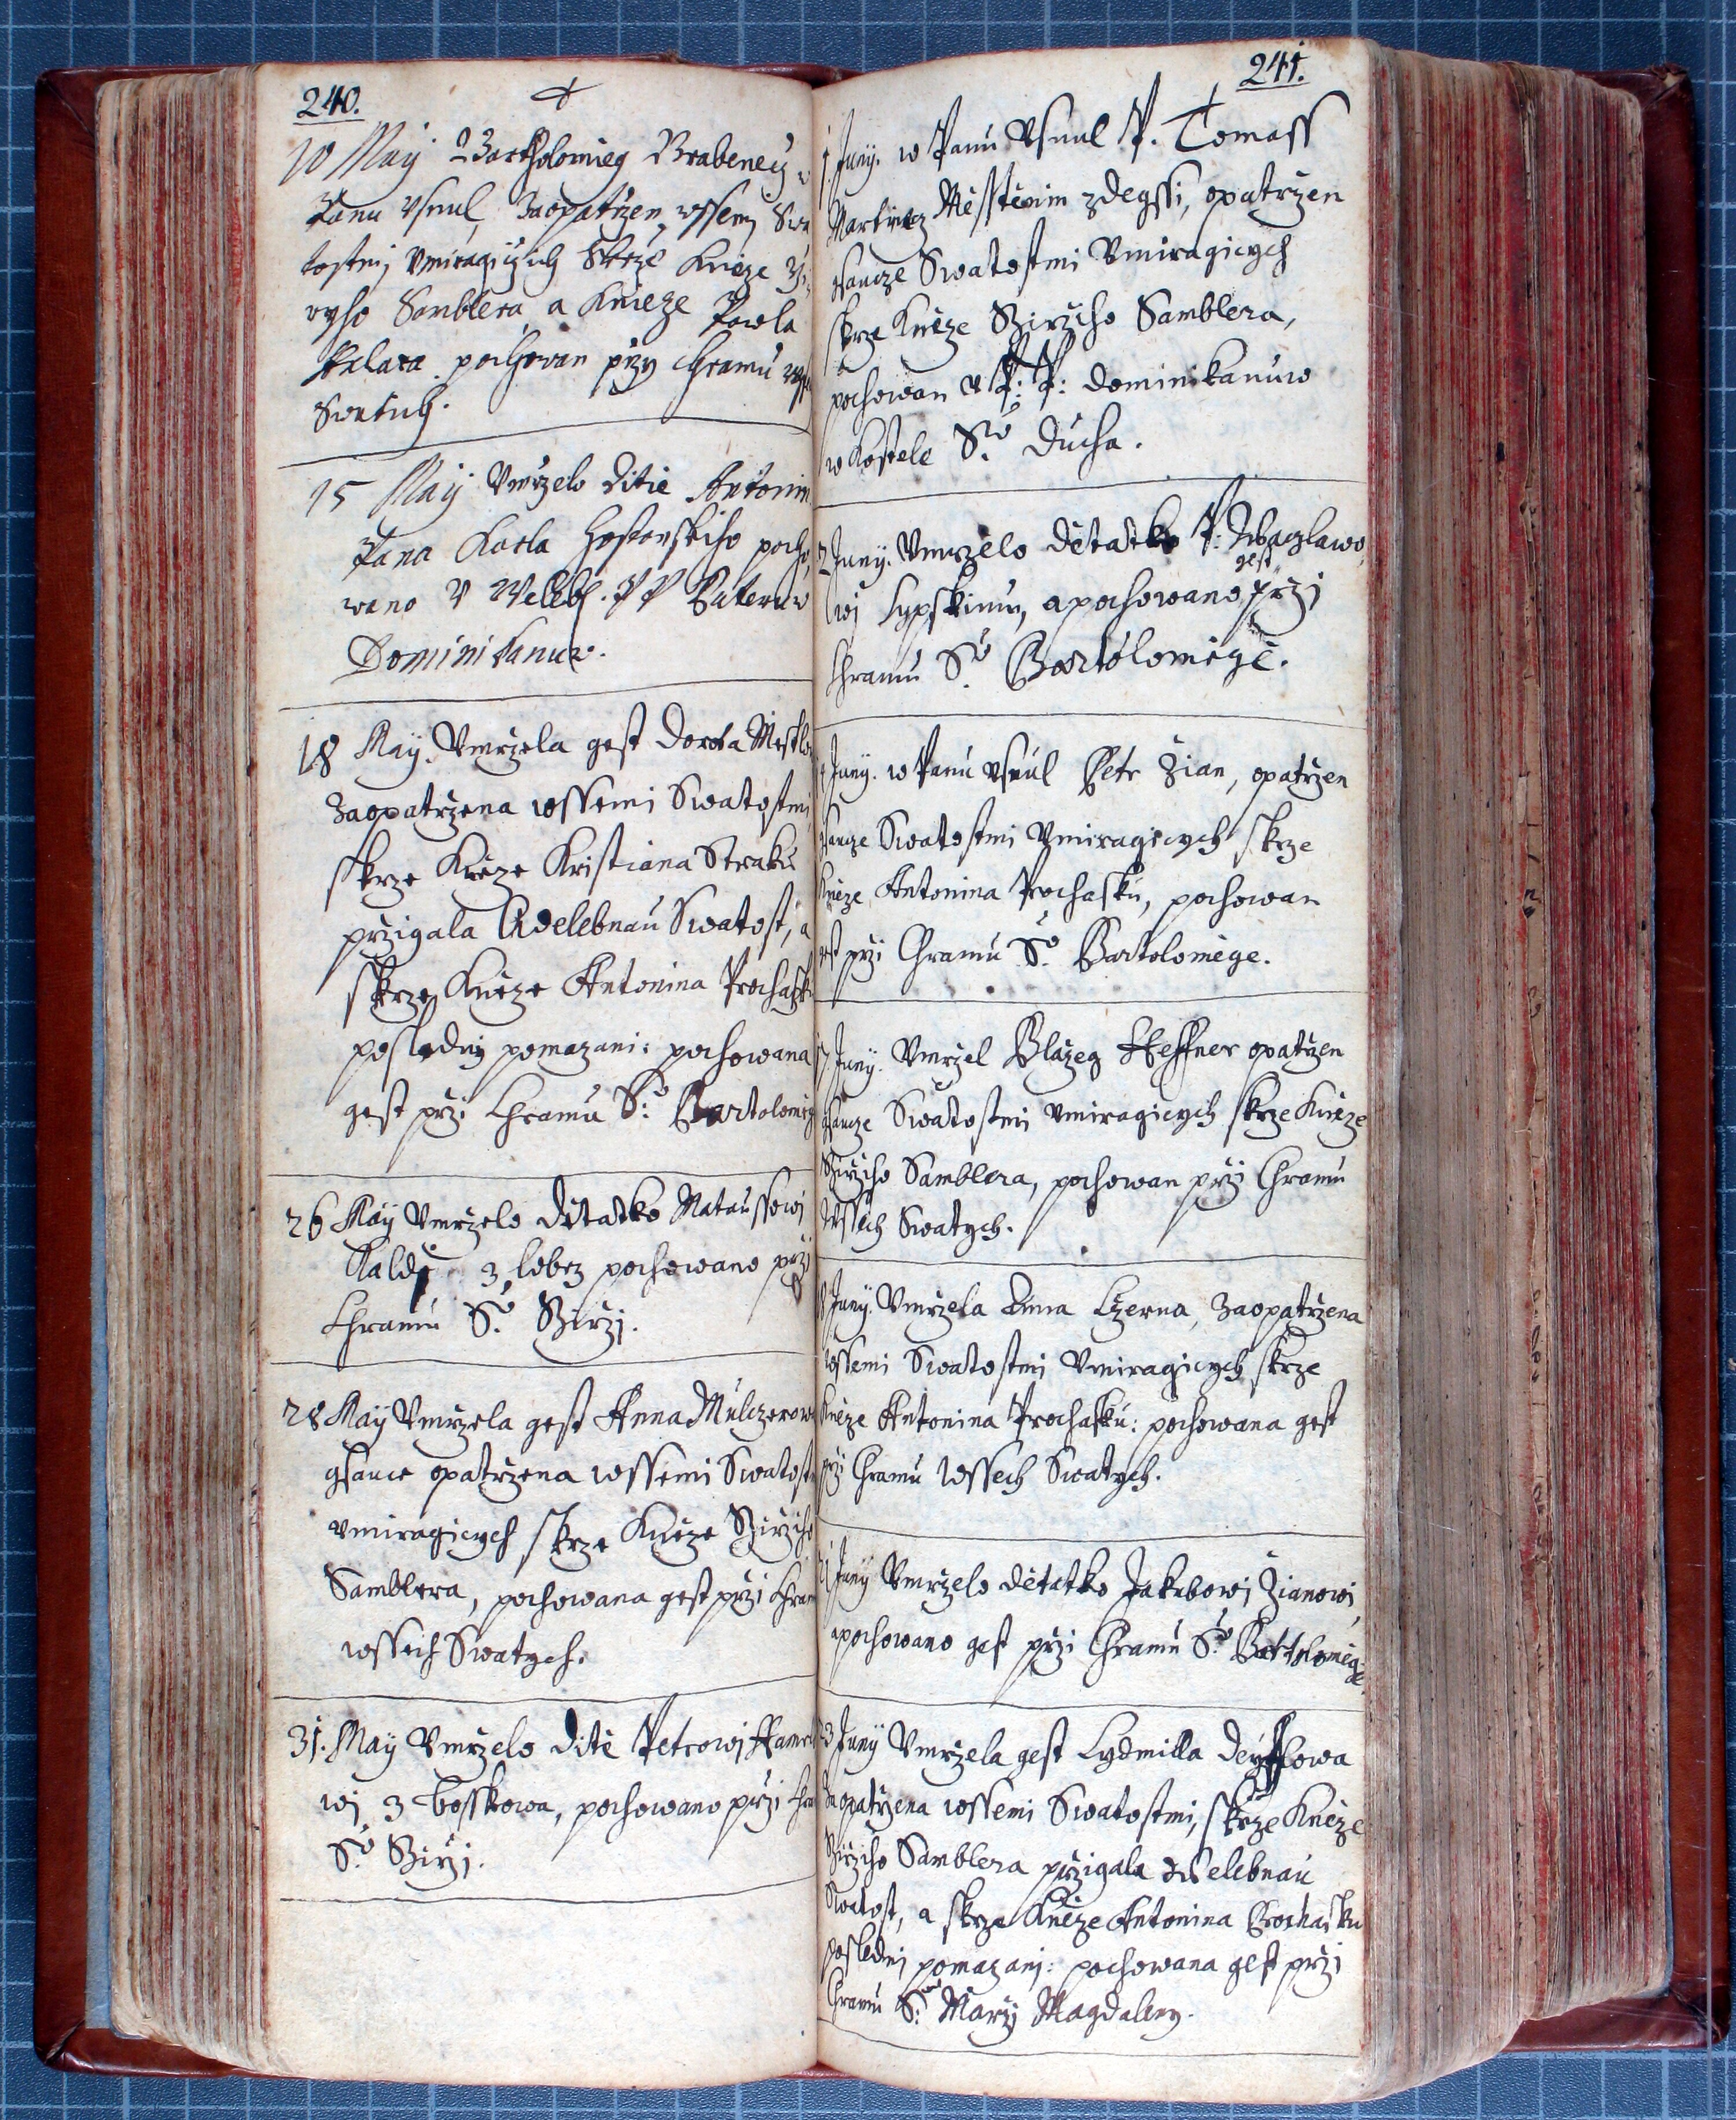 240.
10 May Bartholomieg Brabeneg w
Panu Usnul, Zaopatrzen, wssemi Swa
tostmi Umiragicych skrze Knieze Gi
rzyho Samblera, a Knieze Pawla
Skalaka. pochowan przy Chramu wss
Swatych.
15 May Umrzelo Ditie Antonin
Pana Karla pocho
wano U Welebl. PP Paterum
Dominikanum.
18 May. Umrzela gest Dorota
Zaopatrzena wssemi Swatostmi
skrze Knèze Kristiana Straku
przigala Welebnau Swatost, a
skrze Knèze Antonina Prochasku
posledny pomazani: pochowana
gest przi Chramu S:º Bartolomig
26 May Umrzelo Dètatko Mataussowi
z pochowano przi
Chramu S.º Girzj.
28 May Umrzela gest Anna Mulczerowa
gsauce opatrzena wssemi Swatostmi
Umiragicych skrze Knèze Girziho
Samblera, pochowana gest przi Chramu
wssech Swatych.
31. May Umrzelo Ditè Petrowi
wi z Bosskowa, pochowano przi Chra
S.º Girzj.
241.
Juny. w Panu Usnul P. Tomass
Martinez Mèsstènin zdegssi, opatrzen
gsaucze Swatostmi Umiragicych
skrze Knèze Girziho Samblera,
pochowan u P: P: Dominikanuw
w Kostele S.º Ducha.
Juny. Umrzelo dètatko P. Waczlawo
gest
wi Lypskimu, a pochowano przi
Chramu S.º Bartolomège.
Juny. w Panu Usnul Petr Zian, opatrzen
gsaucze Swatostmi Umiragicych skrze
Knèze Antonina Prochasku, pochowan
gest przi Chramu S.º Bartolomège.
Juny. Umrzel Blazeg Heffner opatrzen
gsaucze Swatostmi Umiragicych skrze Knèze
Girziho Samblera, pochowan przi Chramu
Wssech Swatych.
Juny. Umrzela Anna Czerna, Zaopatrzena
wssemi Swatostmi Umiragicych skrze
Knèze Antonina Prochasku: pochowana gest
przi Chramu Wssech Swatych.
Juny Umrzelo dètatko Jakubowi Zianowi,
a pochowano gest przi Chramu S.º Bartolomèg=
ge.
Juny Umrzela gest Lydmilla
Zaopatrzena wssemi Swatostmi, skrze Knèze
Girziho Samblera przigala Welebnau
Swatost, a skrze Knèze Antonina Prochasku
posledni pomazani: pochowana gest przi
Chramu S. Marzi Magdaleny.